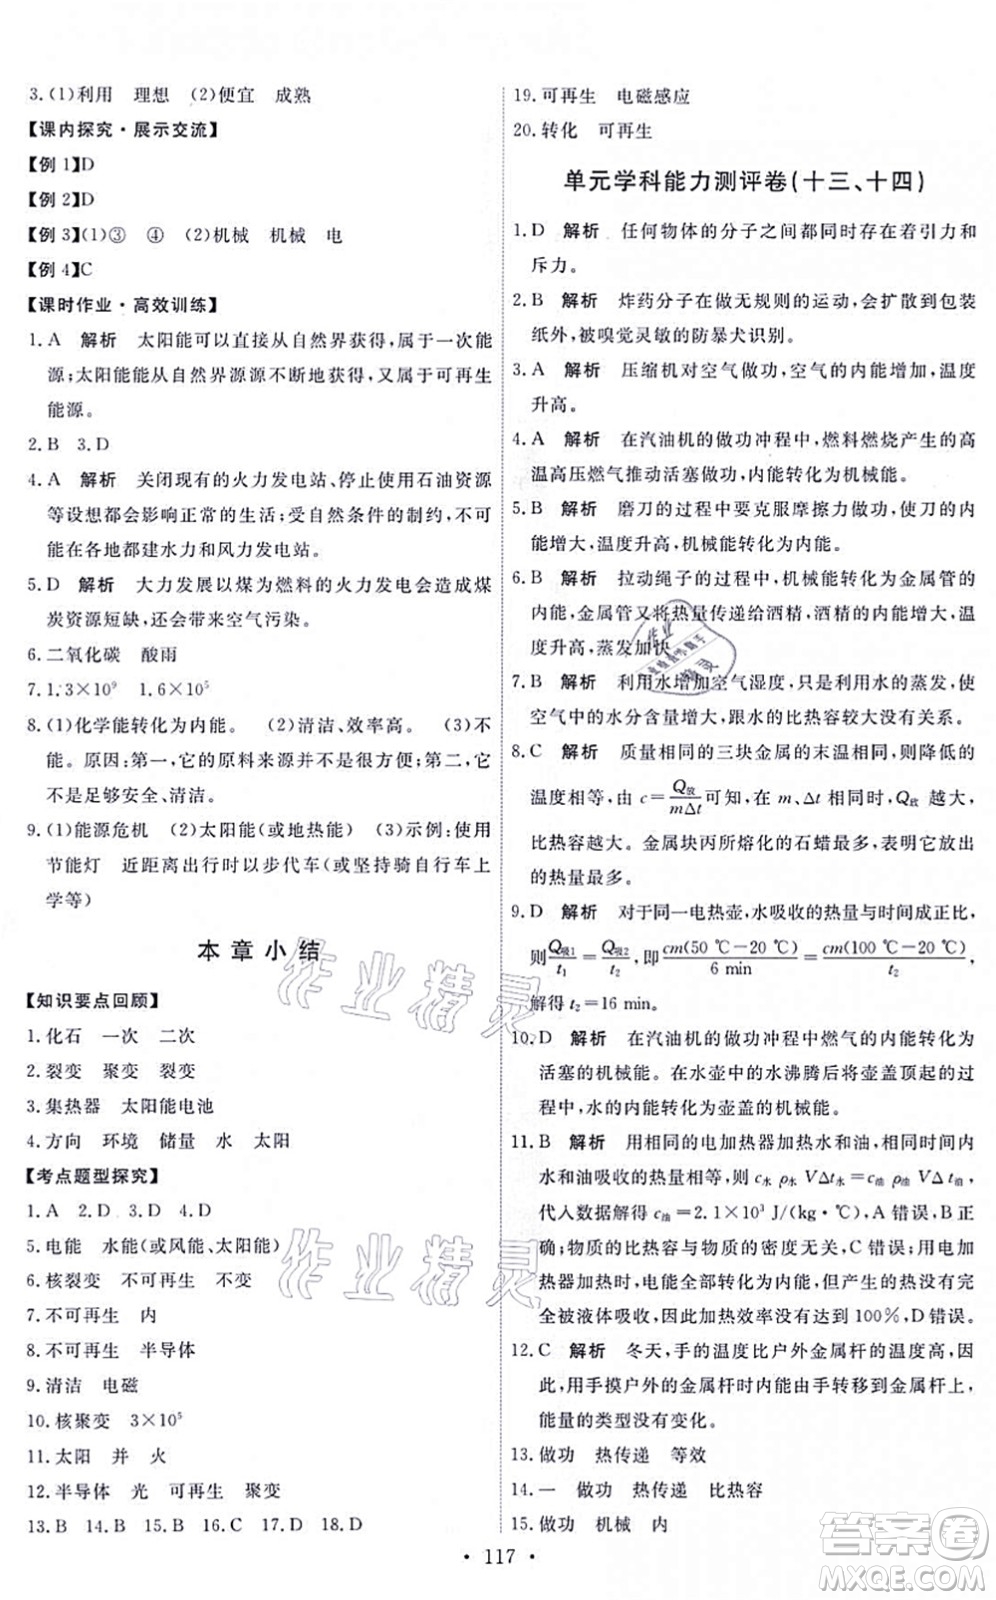 3.(1)利用　理想　(2)便宜　成熟
【课内探究·展示交流】
【例 1】D
【例 2】D
【例 3】(1)③　④　(2)机械　机械　电
【例 4】C
【课时作业·高效训练】
1. A　解析　太阳能可以直接从自然界获得,属于一次能
源;太阳能能从自然界源源不断地获得,属于可再生
能源。
2. B　3. D
4. A　解析　关闭现有的火力发电站、停止使用石油资源
等设想都会影响正常的生活;受自然条件的制约,不可
能在各地都建水力和风力发电站。
5. D　解析　大力发展以煤为燃料的火力发电会造成煤
炭资源短缺,还会带来空气污染。
6. 二氧化碳　酸雨
7. 1.3×10⁹　1.6×10⁵
8.(1)化学能转化为内能。　(2)清洁、效率高。　(3)不
能。原因:第一,它的原料来源并不丰富;第二,它并
不是足够安全、清洁。
9.(1)能源危机　(2)太阳能(或地热能)　(3)示例:使用
节能灯　近距离出行时以步代车(或坚持骑自行车上
学等)
本 章 小 结
【知识要点回顾】
1. 化石　一次　二次
2. 裂变　聚变　裂变
3. 集热器　太阳能电池
4. 方向　环境　储量　水　太阳
【考点题型探究】
1. A　2. D　3. D　4. D
5. 电能　水能(或风能、太阳能)
6. 核裂变　不可再生　不变
7. 不可再生　内
8. 不可再生　半导体
9. 清洁　电磁
10. 核聚变　3×10⁵
11. 太阳　并　火
12. 半导体　光　可再生　聚变
13. B　14. B　15. B　16. C　17. D　18. D
19. 可再生　电磁感应
20. 转化　可再生
单元学科能力测评卷(十三、十四)
1. D　解析　任何物体的分子之间都同时存在着引力和
斥力。
2. B　解析　炸药分子在做无规则的运动,会扩散到包装
纸外,被嗅觉灵敏的防暴犬识别。
3. A　解析　压缩机对空气做功,空气的内能增加,温度
升高。
4. A　解析　在汽油机的做功冲程中,燃料燃烧产生的高
温高压燃气推动活塞做功,内能转化为机械能。
5. B　解析　磨刀的过程中要克服摩擦力做功,使刀的内
能增大,温度升高,机械能转化为内能。
6. B　解析　拉动绳子的过程中,机械能转化为金属管的
内能,金属管又将热量传递给酒精,酒精的内能增大,温
度升高,蒸发加快。
7. D　解析　利用水增加空气湿度,只是利用水的蒸发,使
空气中的水分含量增大,跟水的比热容较大没有关系。
8. C　解析　质量相同的三块金属的末温相同,则降低的
温度相等,由 c=Q放/mΔt可知,在 m、Δt 相同时,Q放 越大,
比热容越大。金属块丙所熔化的石蜡最多,表明它放出
的热量最多。
9. D　解析　对于同一电热壶,水吸收的热量与时间成正比,
则Q吸1/t₁=Q吸2/t₂,即cm(50 ℃−20 ℃)/6 min=cm(100 ℃−20 ℃)/t₂,
解得 t₂=16 min。
10. D　解析　在汽油机的做功冲程中燃气的内能转化为
活塞的机械能。在水壶中的水沸腾后把壶盖顶起的过
程中,水的内能转化为壶盖的机械能。
11. B　解析　用相同的电加热器加热水和油,相同时间内
水和油吸收的热量相等,则 c水 ρ水 VΔt水=c油 ρ油 VΔt油,
代入数据解得 c油=2.1×10³ J/(kg·℃),A 错误,B 正
确;物质的比热容与物质的多少无关,C 错误;用电加
热器加热时,电能全部转化为内能,但产生的热量没有完
全被液体吸收,因此加热效率没有达到 100%,D 错误。
12. C　解析　冬天,手的温度比户外金属杆的温度高,因
此,用手摸户外的金属杆时内能由手转移到金属杆上,
能量的类型没有变化。
13. 做功　热传递　等效
14. 一　做功　热传递　比热容
15. 做功　机械　内
• 117 •
作业精灵
作业精灵
答案卷
MXQE.COM